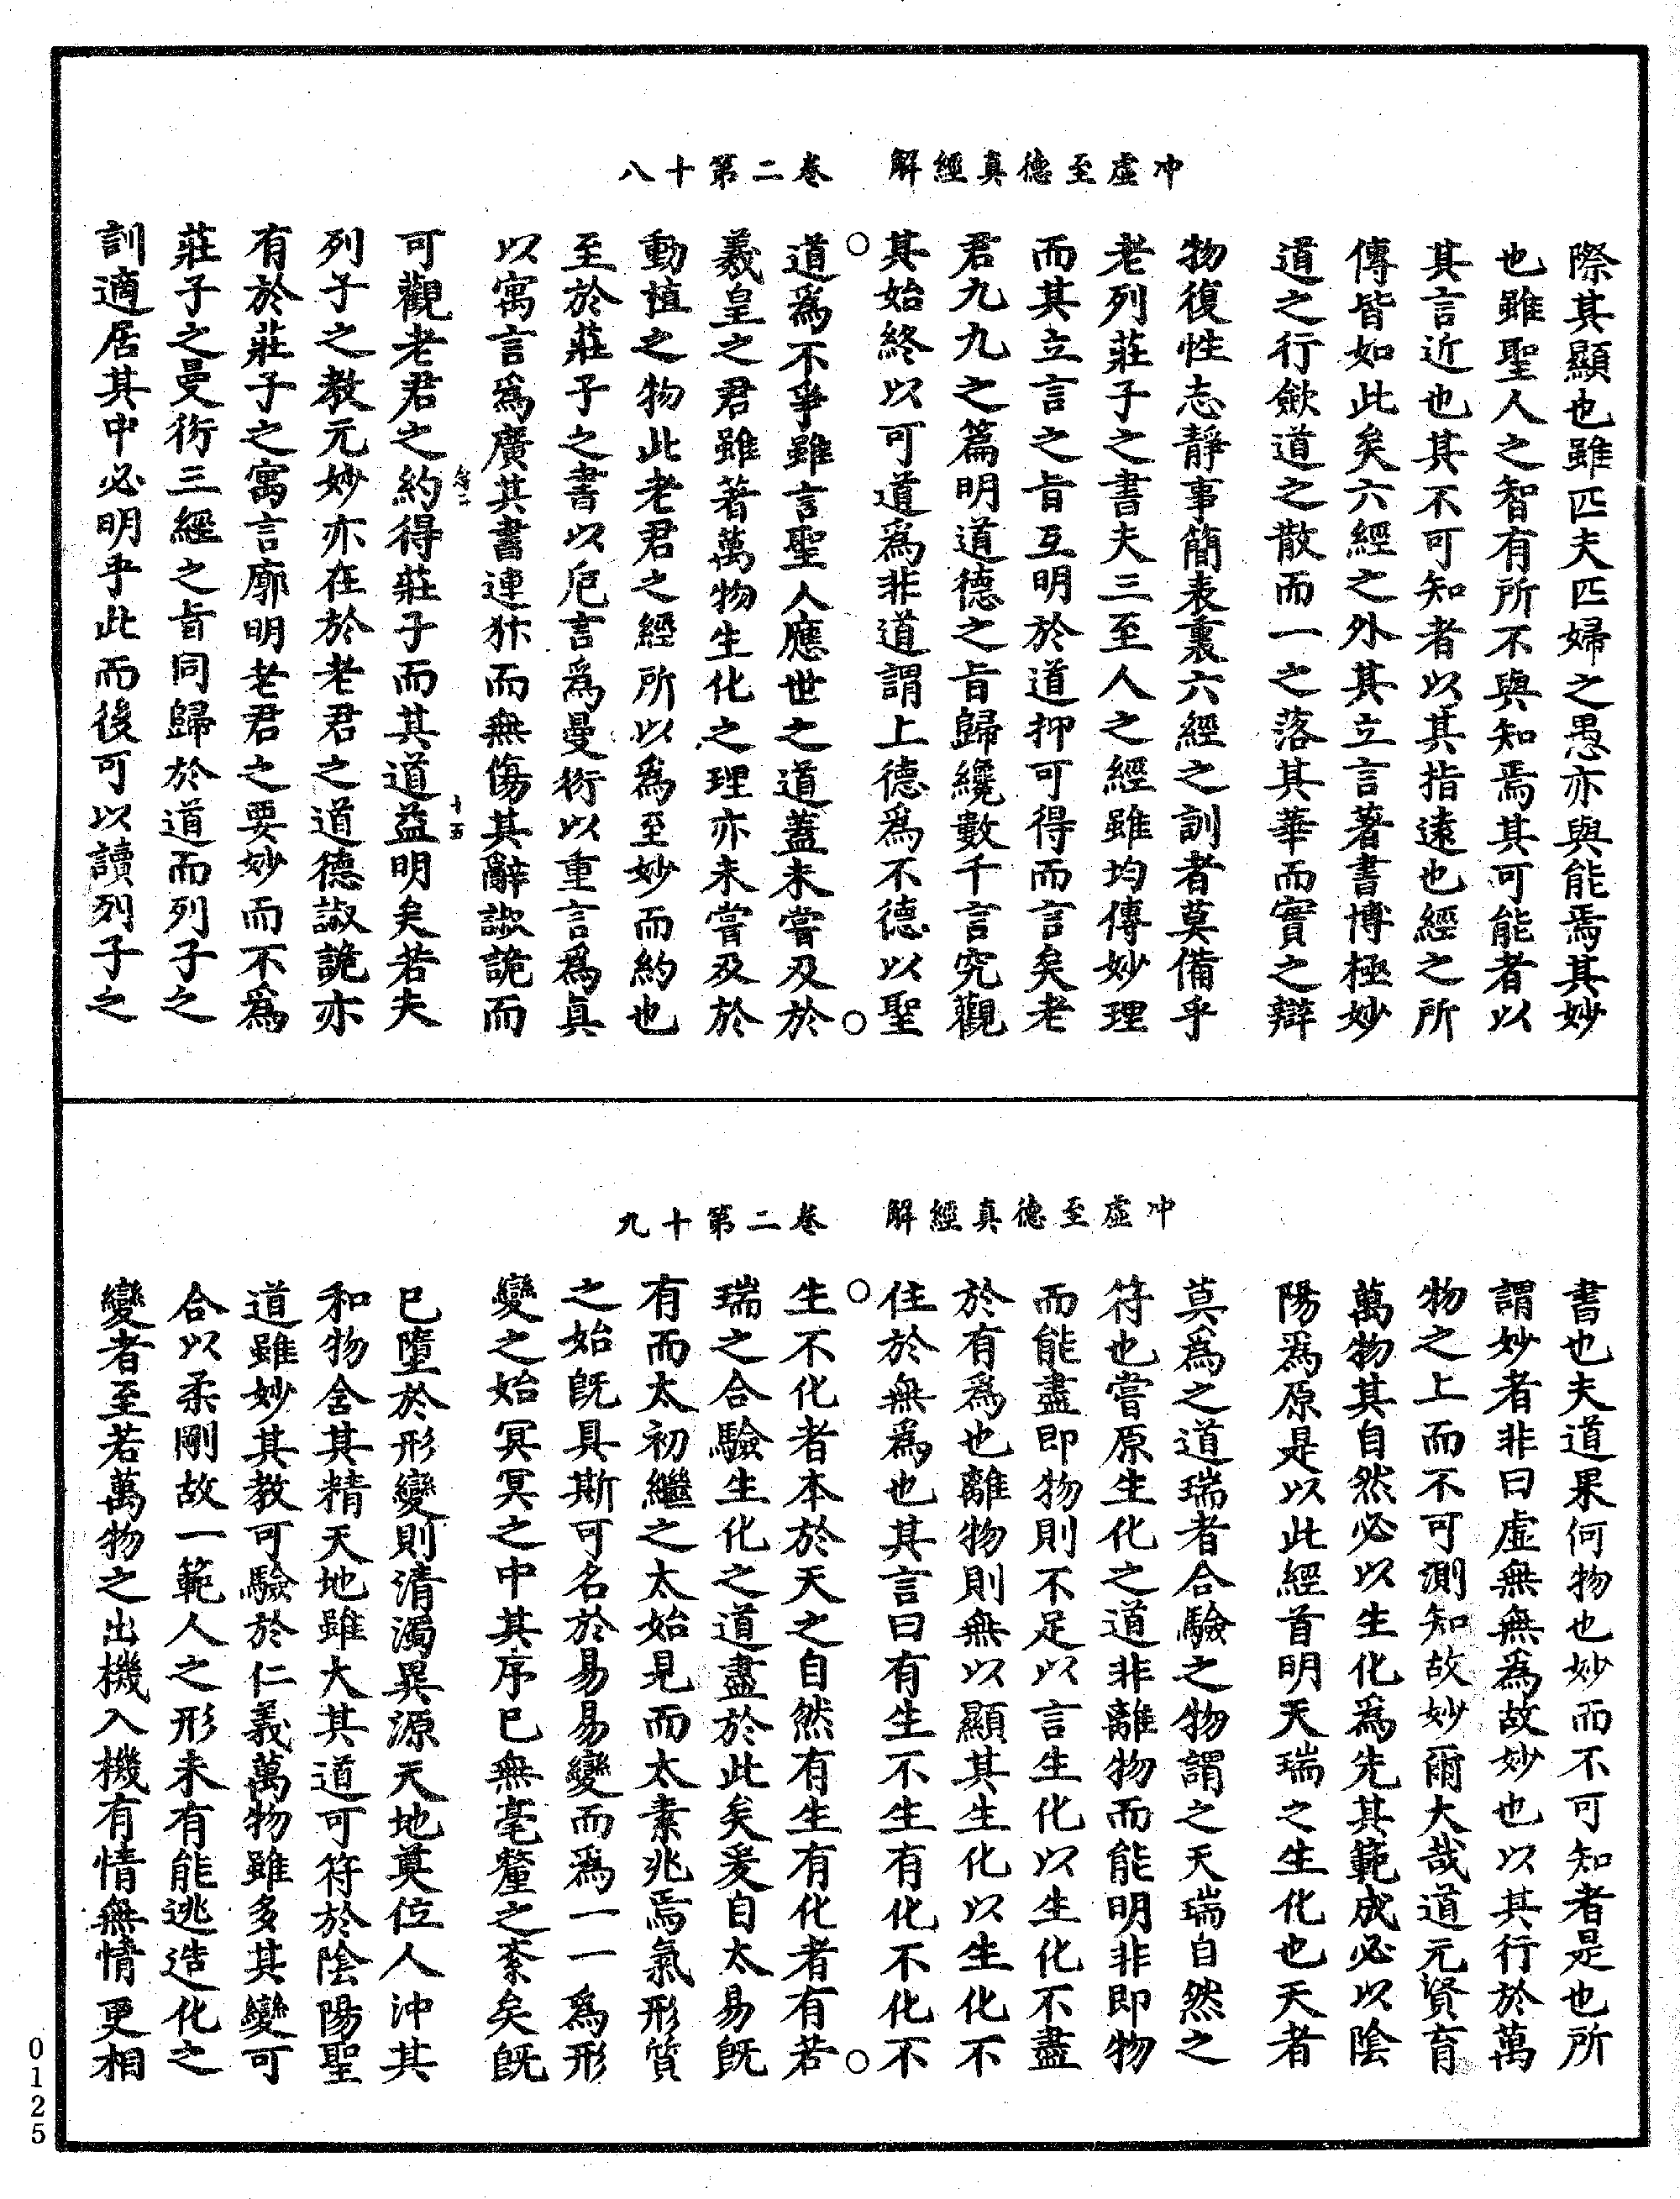 冲虛至德真經解　卷二第十八
際其顯也雖匹夫匹婦之愚亦與能焉其妙
也雖聖人之智有所不與知焉其可能者以
其言近也其不可知者以其指遠也經之所
傳皆如此矣六經之外其立言著書博極妙
道之行斂道之散而一之落其華而實之辯
物復性志靜事簡表裏六經之訓者莫備乎
老列莊子之書夫三至人之經雖均傳妙理
而其立言之旨互明於道抑可得而言矣老
君九九之篇明道德之旨歸纔數千言究觀
其始終以可道爲非道謂上德爲不德以聖
道爲不爭雖言聖人應世之道蓋未嘗及於
羲皇之君雖著萬物生化之理亦未嘗及於
動植之物此老君之經所以爲至妙而約也
至於莊子之書以卮言爲曼衍以重言爲真
以寓言爲廣其書連犿而無傷其辭諔詭而
可觀老君之約得莊子而其道益明矣若夫
列子之教元妙亦在於老君之道德諔詭亦
有於莊子之寓言廓明老君之要妙而不爲
莊子之曼衍三經之旨同歸於道而列子之
訓適居其中必明乎此而後可以讀列子之
十五
冲虛至德真經解　卷二第十九
書也夫道果何物也妙而不可知者是也所
謂妙者非曰虛無無爲故妙也以其行於萬
物之上而不可測知故妙爾大哉道元資育
萬物其自然必以生化爲先其範成必以陰
陽爲原是以此經首明天瑞之生化也天者
莫爲之道瑞者合驗之物謂之天瑞自然之
符也嘗原生化之道非離物而能明非即物
而能盡即物則不足以言生化以生化不盡
於有爲也離物則無以顯其生化以生化不
住於無爲也其言曰有生不生有化不化不
生不化者本於天之自然有生有化者有若
瑞之合驗生化之道盡於此矣爰自太易旣
有而太初繼之太始見而太素兆焉氣形質
之始旣具斯可名於易易變而爲一一爲形
變之始冥冥之中其序已無毫釐之紊矣旣
已墮於形變則清濁異源天地奠位人沖其
和物舍其精天地雖大其道可符於陰陽聖
道雖妙其教可驗於仁義萬物雖多其變可
合以柔剛故一範人之形未有能逃造化之
變者至若萬物之出機入機有情無情更相
0125